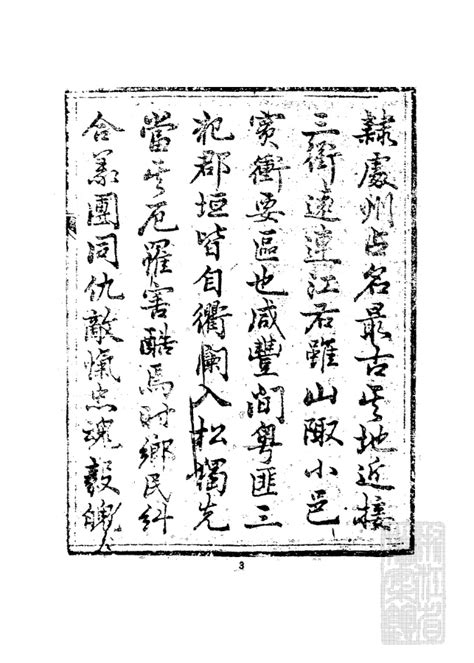 隸處州占名最古其地近接
三衢遠連江右雖山陬小邑
實衝要區也咸豐間粵匪三
犯郡垣皆自衢闌入松獨先
當其厄罹害酷焉時鄉民糾
合義團同仇敵愾忠魂毅魄
3